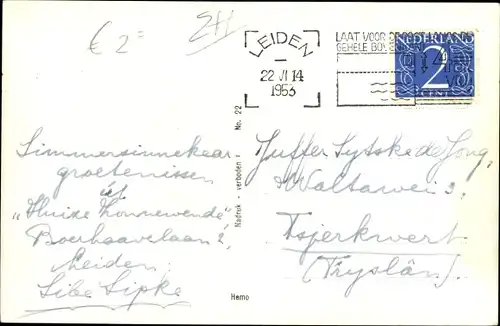 € 2=
2H
LEIDEN
22 VI 14
1953
LAAT VOOR
GEHELE
NEDERLAND
2
CENT
Simmersinnekear
groetenissen
út
"Huize Zonnewende"
Boerhaavelaan 2,
Leiden.
Sibe Sipke
Nadruk verboden No. 22
Hemo
Juffer Sytske de Jong,
Waltawei 3,
Tsjerkwert
(Fryslân).